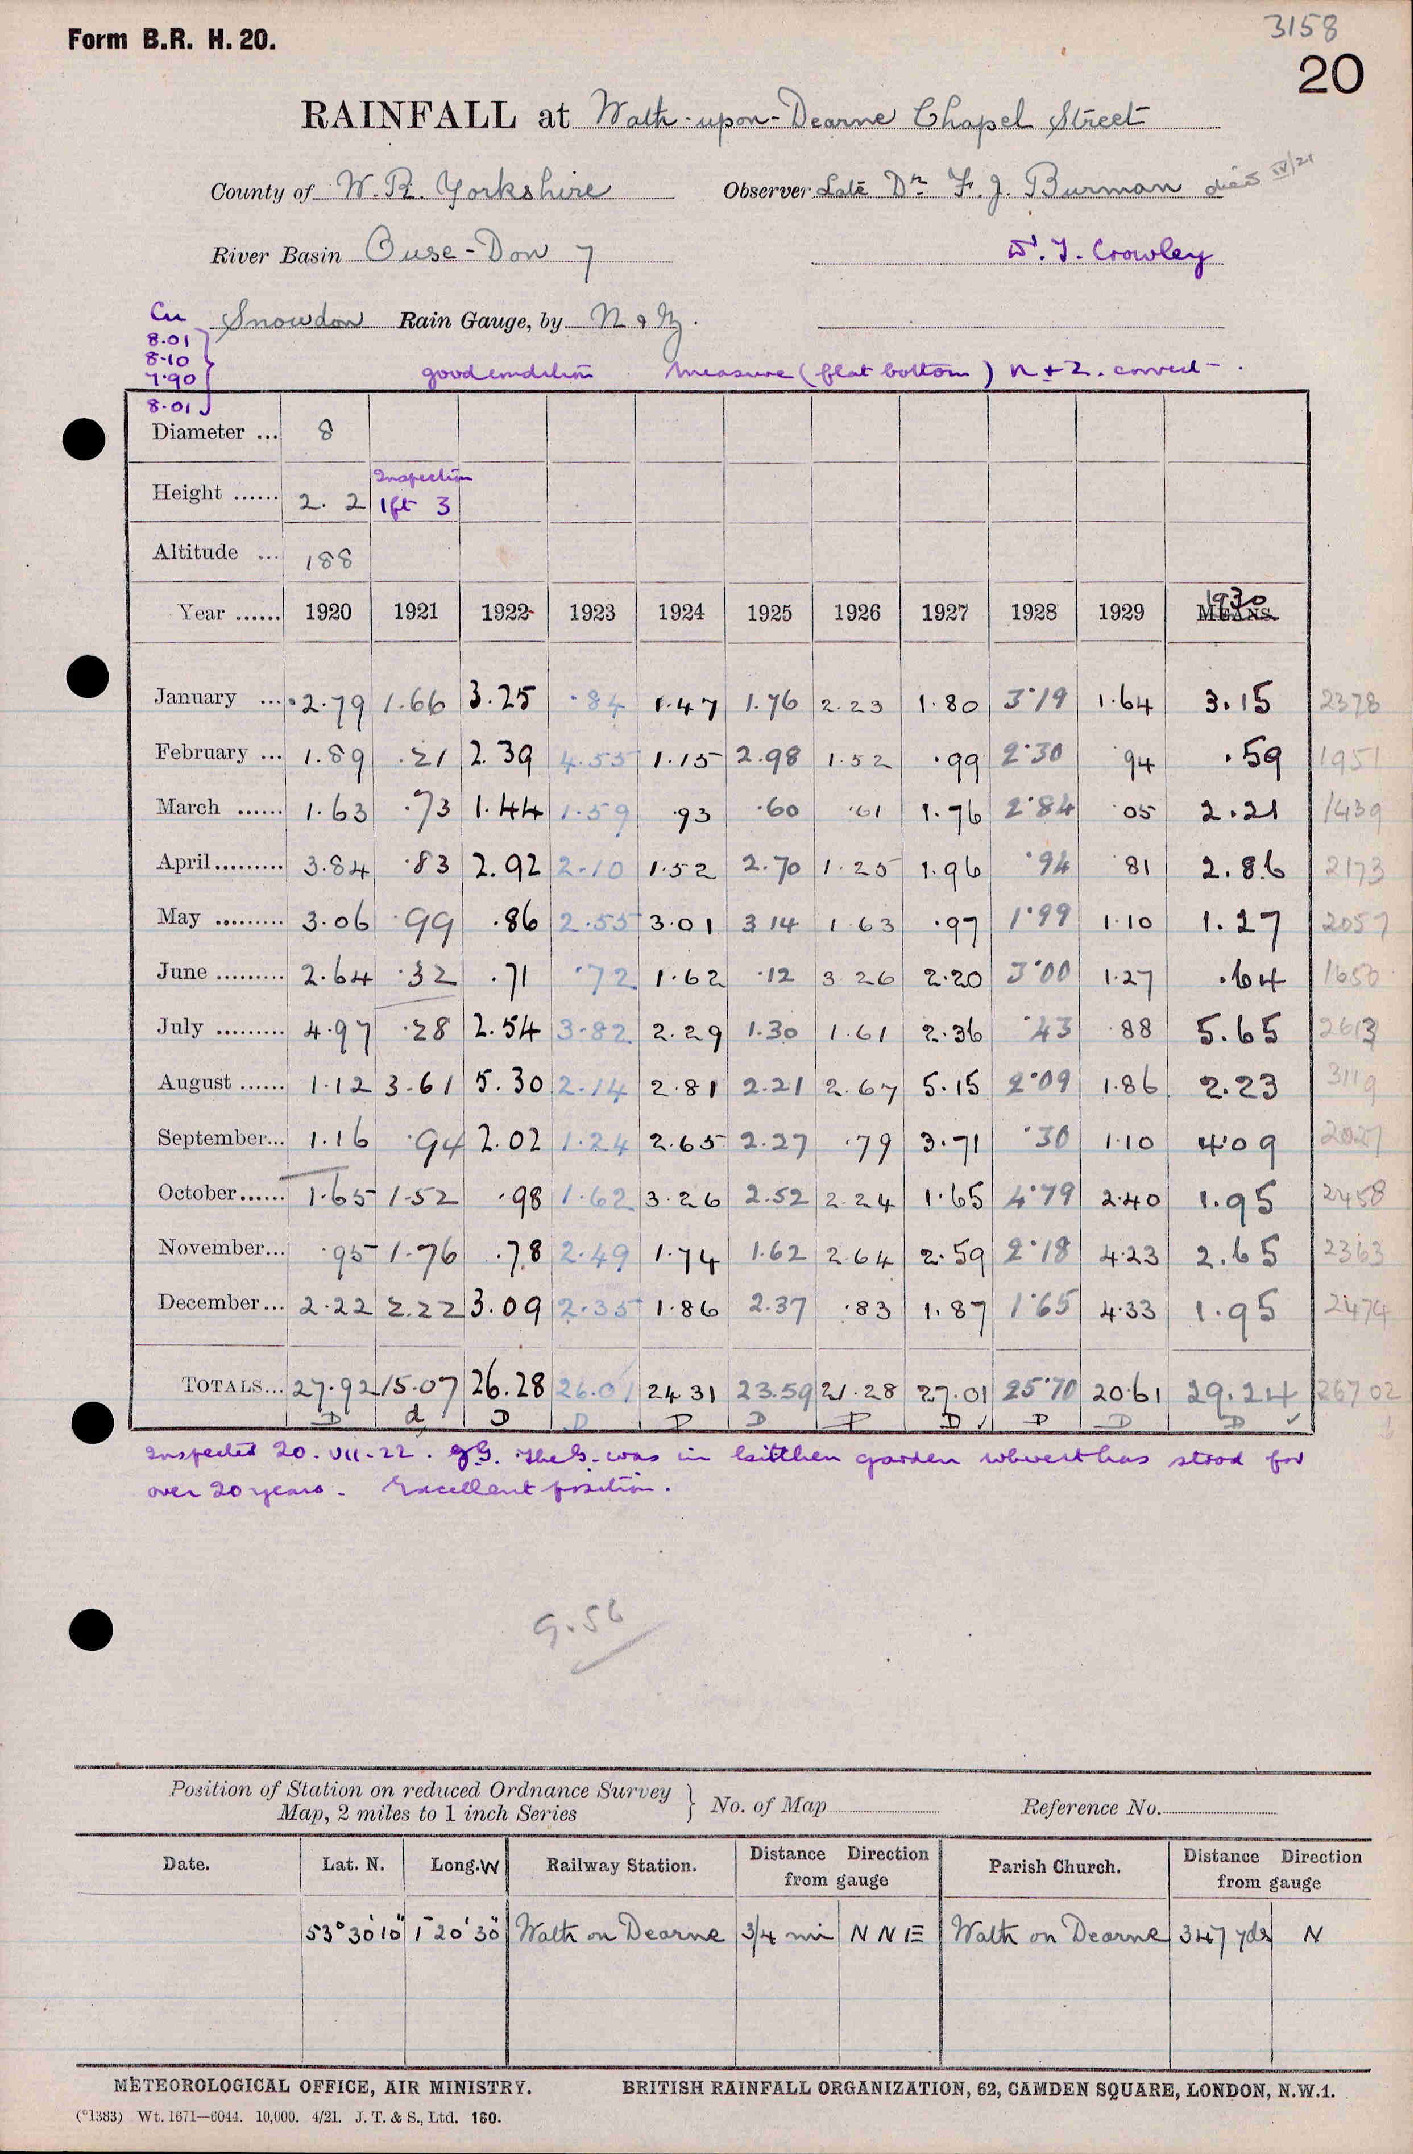 3158
Form B.R. H. 20.
20
RAINFALL at Wath-upon-Dearne Chapel Street
County of W. R. Yorkshire Observer Late Dr F. J. Burman died IV/21
River Basin Ouse-Don 7 W. J. Crowley
Cu Snowdon Rain Gauge, by N & Z.
8.01
8.10
7.90
8.01
good condition measure (flat bottom) N + Z. correct.
Diameter ... 8
Height ...... 2. 2 Inspection 1ft 3
Altitude ... 188
Year ...... 1920 1921 1922 1923 1924 1925 1926 1927 1928 1929 1930 MEANS.
January ... 2.79 1.66 3.25 .84 1.47 1.76 2.23 1.80 3.19 1.64 3.15 2378
February ... 1.89 .21 2.39 4.55 1.15 2.98 1.52 .99 2.30 .94 .59 1951
March ...... 1.63 .73 1.44 1.59 .93 .60 .61 1.76 2.84 .05 2.21 1439
April......... 3.84 .83 2.92 2.10 1.52 2.70 1.25 1.96 .94 .81 2.86 2173
May ......... 3.06 .99 .86 2.55 3.01 3.14 1.63 .97 1.99 1.10 1.27 2057
June ......... 2.64 .32 .71 .72 1.62 .12 3.26 2.20 3.00 1.27 .64 1650
July ......... 4.97 .28 2.54 3.82 2.29 1.30 1.61 2.36 .43 .88 5.65 2613
August ...... 1.12 3.61 5.30 2.14 2.81 2.21 2.67 5.15 2.09 1.86 2.23 3119
September... 1.16 .94 2.02 1.24 2.65 2.27 .79 3.71 .30 1.10 4.09 2027
October...... 1.65 1.52 .98 1.62 3.26 2.52 2.24 1.65 4.79 2.40 1.95 2458
November... .95 1.76 .78 2.49 1.74 1.62 2.64 2.59 2.18 4.23 2.65 2363
December... 2.22 2.22 3.09 2.35 1.86 2.37 .83 1.87 1.65 4.33 1.95 2474
TOTALS... 27.92 15.07 26.28 26.01 24.31 23.59 21.28 27.01 25.70 20.61 29.24 26702
D d D D P D P D ✓ P D D ✓
Inspected 20.VII.22. The G. was in kitchen garden where it has stood for
over 20 years. Excellent position.
9.56
Position of Station on reduced Ordnance Survey
Map, 2 miles to 1 inch Series } No. of Map Reference No.
Date. Lat. N. Long. W Railway Station. Distance Direction from gauge Parish Church. Distance Direction from gauge
53° 30' 10" 1° 20' 30" Wath on Dearne 3/4 mi N N E Wath on Dearne 347 yds N
METEOROLOGICAL OFFICE, AIR MINISTRY. BRITISH RAINFALL ORGANIZATION, 62, CAMDEN SQUARE, LONDON, N.W.1.
(*1383) Wt. 1671—6044. 10,000. 4/21. J. T. & S., Ltd. 160.